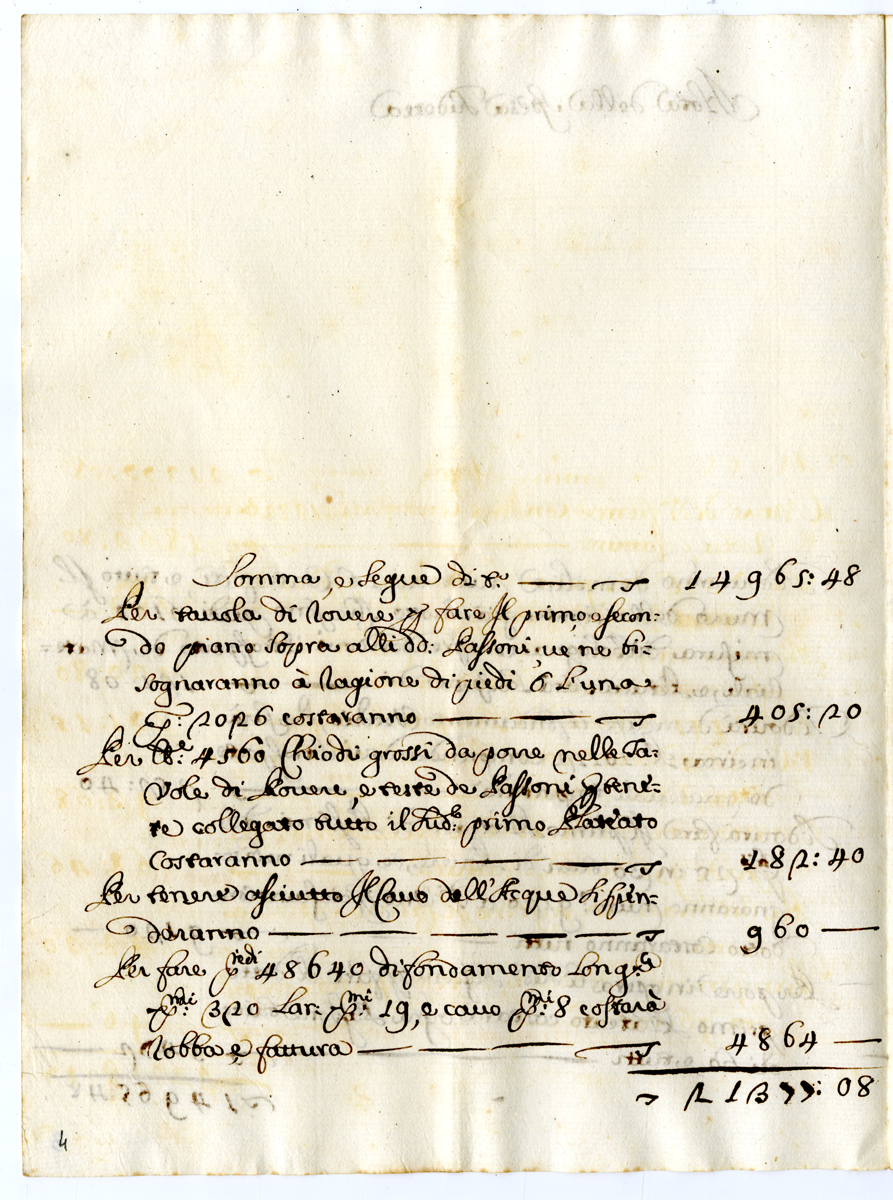 Somma, e segue di s.ª — 14965:48
Per tavola di Rovere p fare Il primo, e secon:
do piano sopra alli dd: Passoni, ve ne bi:
sognaranno à ragione di piedi 6 l'una
2026 costaranno — 405:20
Per 4560 Chiodi grossi da porre nelle Ta:
vole di Rovere, e teste de Passoni p tene:
re collegato tutto il sud.º primo Plateato
Costaranno — 182:40
Per tenere asciutto Il Cavo dell'Acque si spen:
deranno — 960 —
Per fare piedi 48640 di fondamento Long.ª
p.di 320 Lar: 19, e cavo p.di 8 costarà
Robba e fattura — 4864 —
21377:08
4